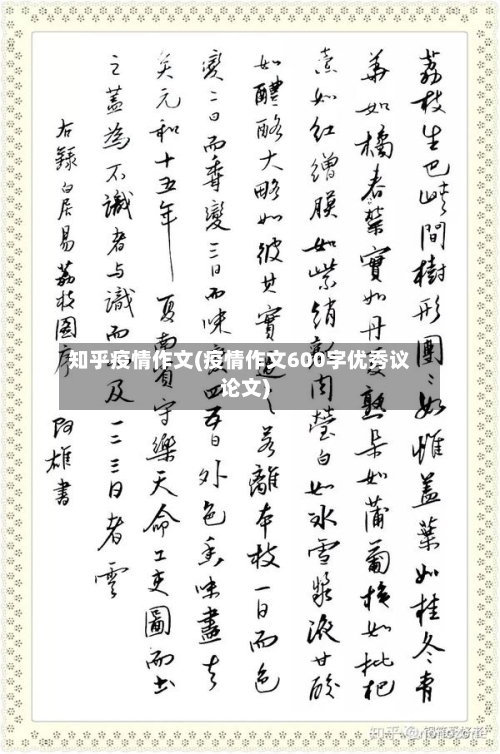 荔枝生巴峡間樹形團〻如帷蓋葉如桂冬青
華如橘春榮實如丹夏熟朵如蒲葡核如枇杷
壳如红缯膜如紫绡瓤肉莹白如冰雪漿液甘酸
如醴酪大略如彼其實过之若離本枝一日而色
變二日而香變三日而味變四五日外色香味盡去
矣元和十五年夏南賓守樂天命工吏圖而书
之蓋為不識者与識而不及一二三日者雲
右錄白居易荔枝图序
阿雄書
知乎疫情作文(疫情作文600字优秀议
论文)
知乎